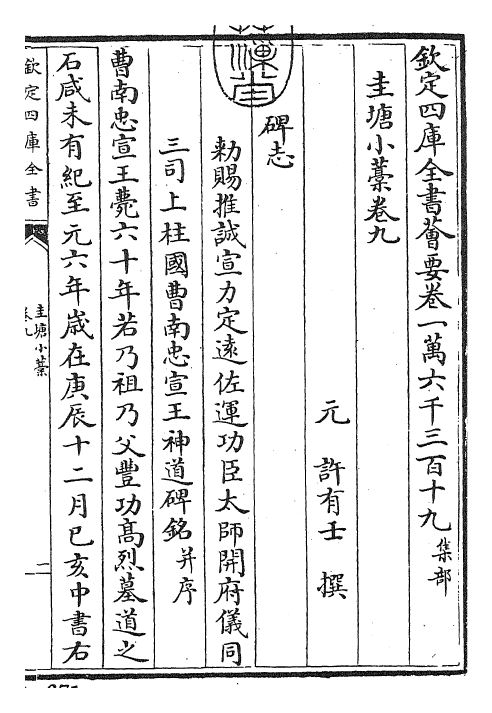 欽定四庫全書薈要卷一萬六千三百十九 集部
圭塘小藁卷九
元 許有壬 撰
碑志
勅賜推誠宣力定遠佐運功臣太師開府儀同
三司上柱國曹南忠宣王神道碑銘 并序
曹南忠宣王薨六十年若乃祖乃父豐功高烈墓道之
石咸未有紀至元六年歲在庚辰十二月巳亥中書右
欽定四庫全書
圭塘小藁
卷九
一